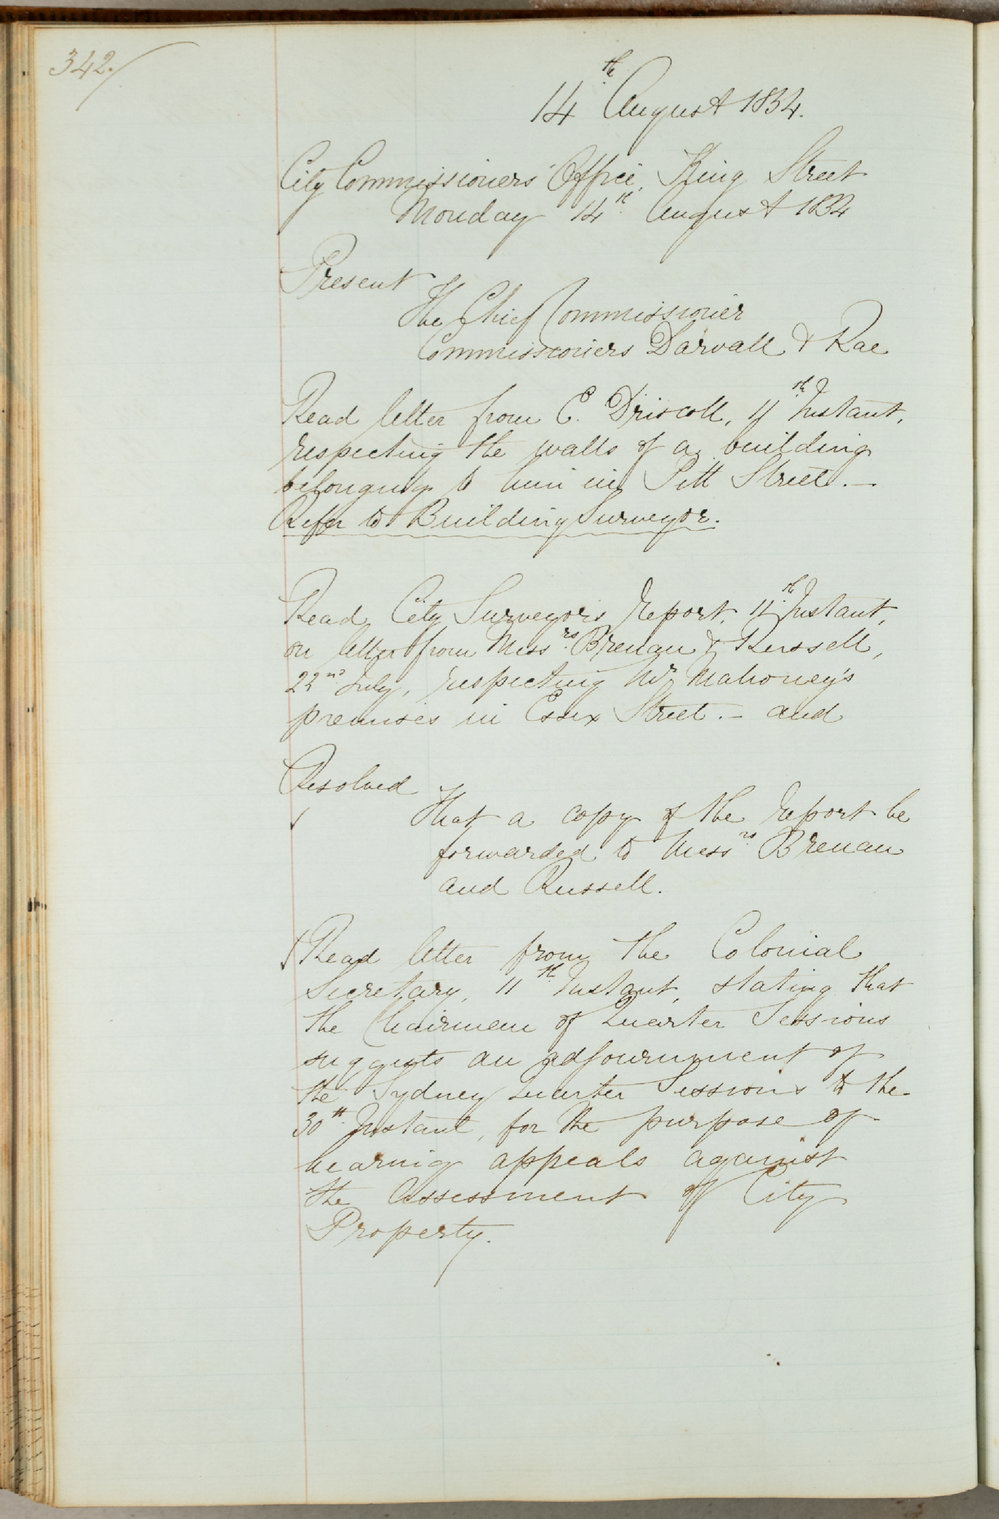 342.
14th August 1854.
City Commissioners' Office, King Street
Monday 14th August 1854
Present
The Chief Commissioner
Commissioners Darvall & Rae
Read letter from C. Driscoll, 11th Instant,
respecting the walls of a building
belonging to him in Pitt Street.—
Refer to Building Surveyor.
Read City Surveyors report, 11th Instant,
on letter from Messrs. Brenan & Russell,
22nd July, respecting Mr Mahoney's
premises in Essex Street.— and
Resolved
That a copy of the report be
forwarded to Messrs Brenan
and Russell.
Read letter from the Colonial
Secretary, 11th Instant, stating that
the Chairman of Quarter Sessions
suggests an adjournment of
the Sydney Quarter Sessions to the
30th Instant, for the purpose of
hearing appeals against
the Assessment of City
Property.